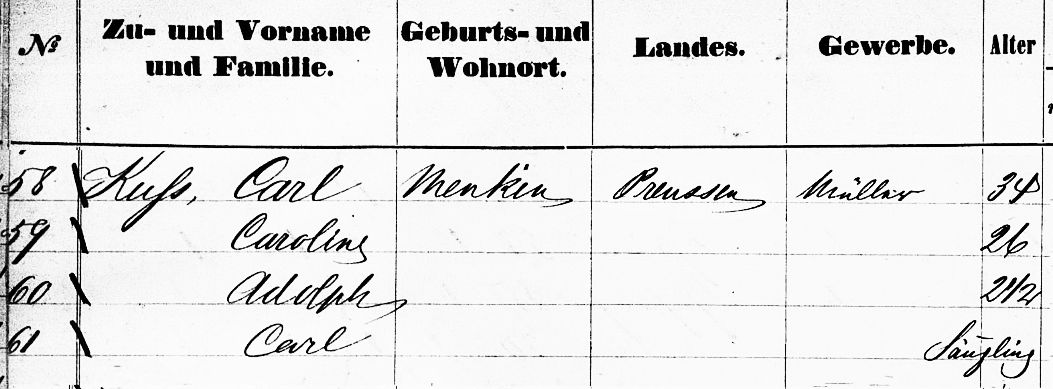 № Zu- und Vorname und Familie. Geburts- und Wohnort. Landes. Gewerbe. Alter
58 Kuß, Carl Menkin Preussen Müller 34
59 Caroline 26
60 Adolph 2 1/2
61 Carl Säugling